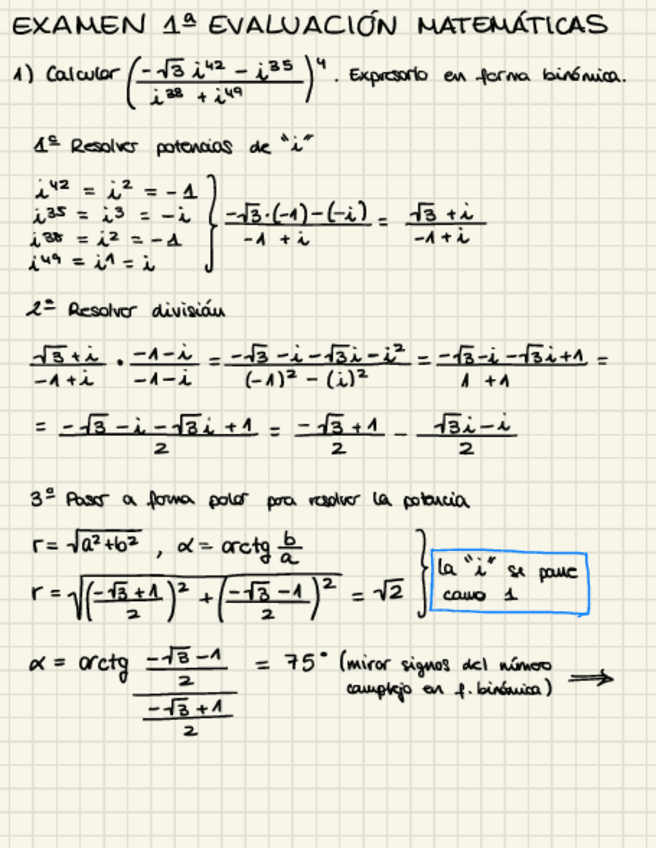 EXAMEN 1ª EVALUACIÓN MATEMÁTICAS
1) Calcular ((-√3 i^42 - i^35)/(i^38 + i^49))^4. Expresarlo en forma binómica.
1º Resolver potencias de "i"
i^42 = i^2 = -1
i^35 = i^3 = -i
i^38 = i^2 = -1
i^49 = i^1 = i
} (-√3·(-1)-(-i))/(-1 + i) = (√3 + i)/(-1 + i)
2º Resolver división
(√3 + i)/(-1 + i) · (-1 - i)/(-1 - i) = (-√3 - i - √3i - i^2)/((-1)^2 - (i)^2) = (-√3 - i - √3i + 1)/(1 + 1) =
= (-√3 - i - √3i + 1)/2 = (-√3 + 1)/2 - (√3i - i)/2
3º Pasar a forma polar para resolver la potencia
r = √(a^2 + b^2) , α = arctg b/a
r = √(((-√3 + 1)/2)^2 + ((-√3 - 1)/2)^2) = √2
} la "i" se pone
como 1
α = arctg ((-√3 - 1)/2)/((-√3 + 1)/2) = 75° (mirar signos del número
complejo en f. binómica) ⟹